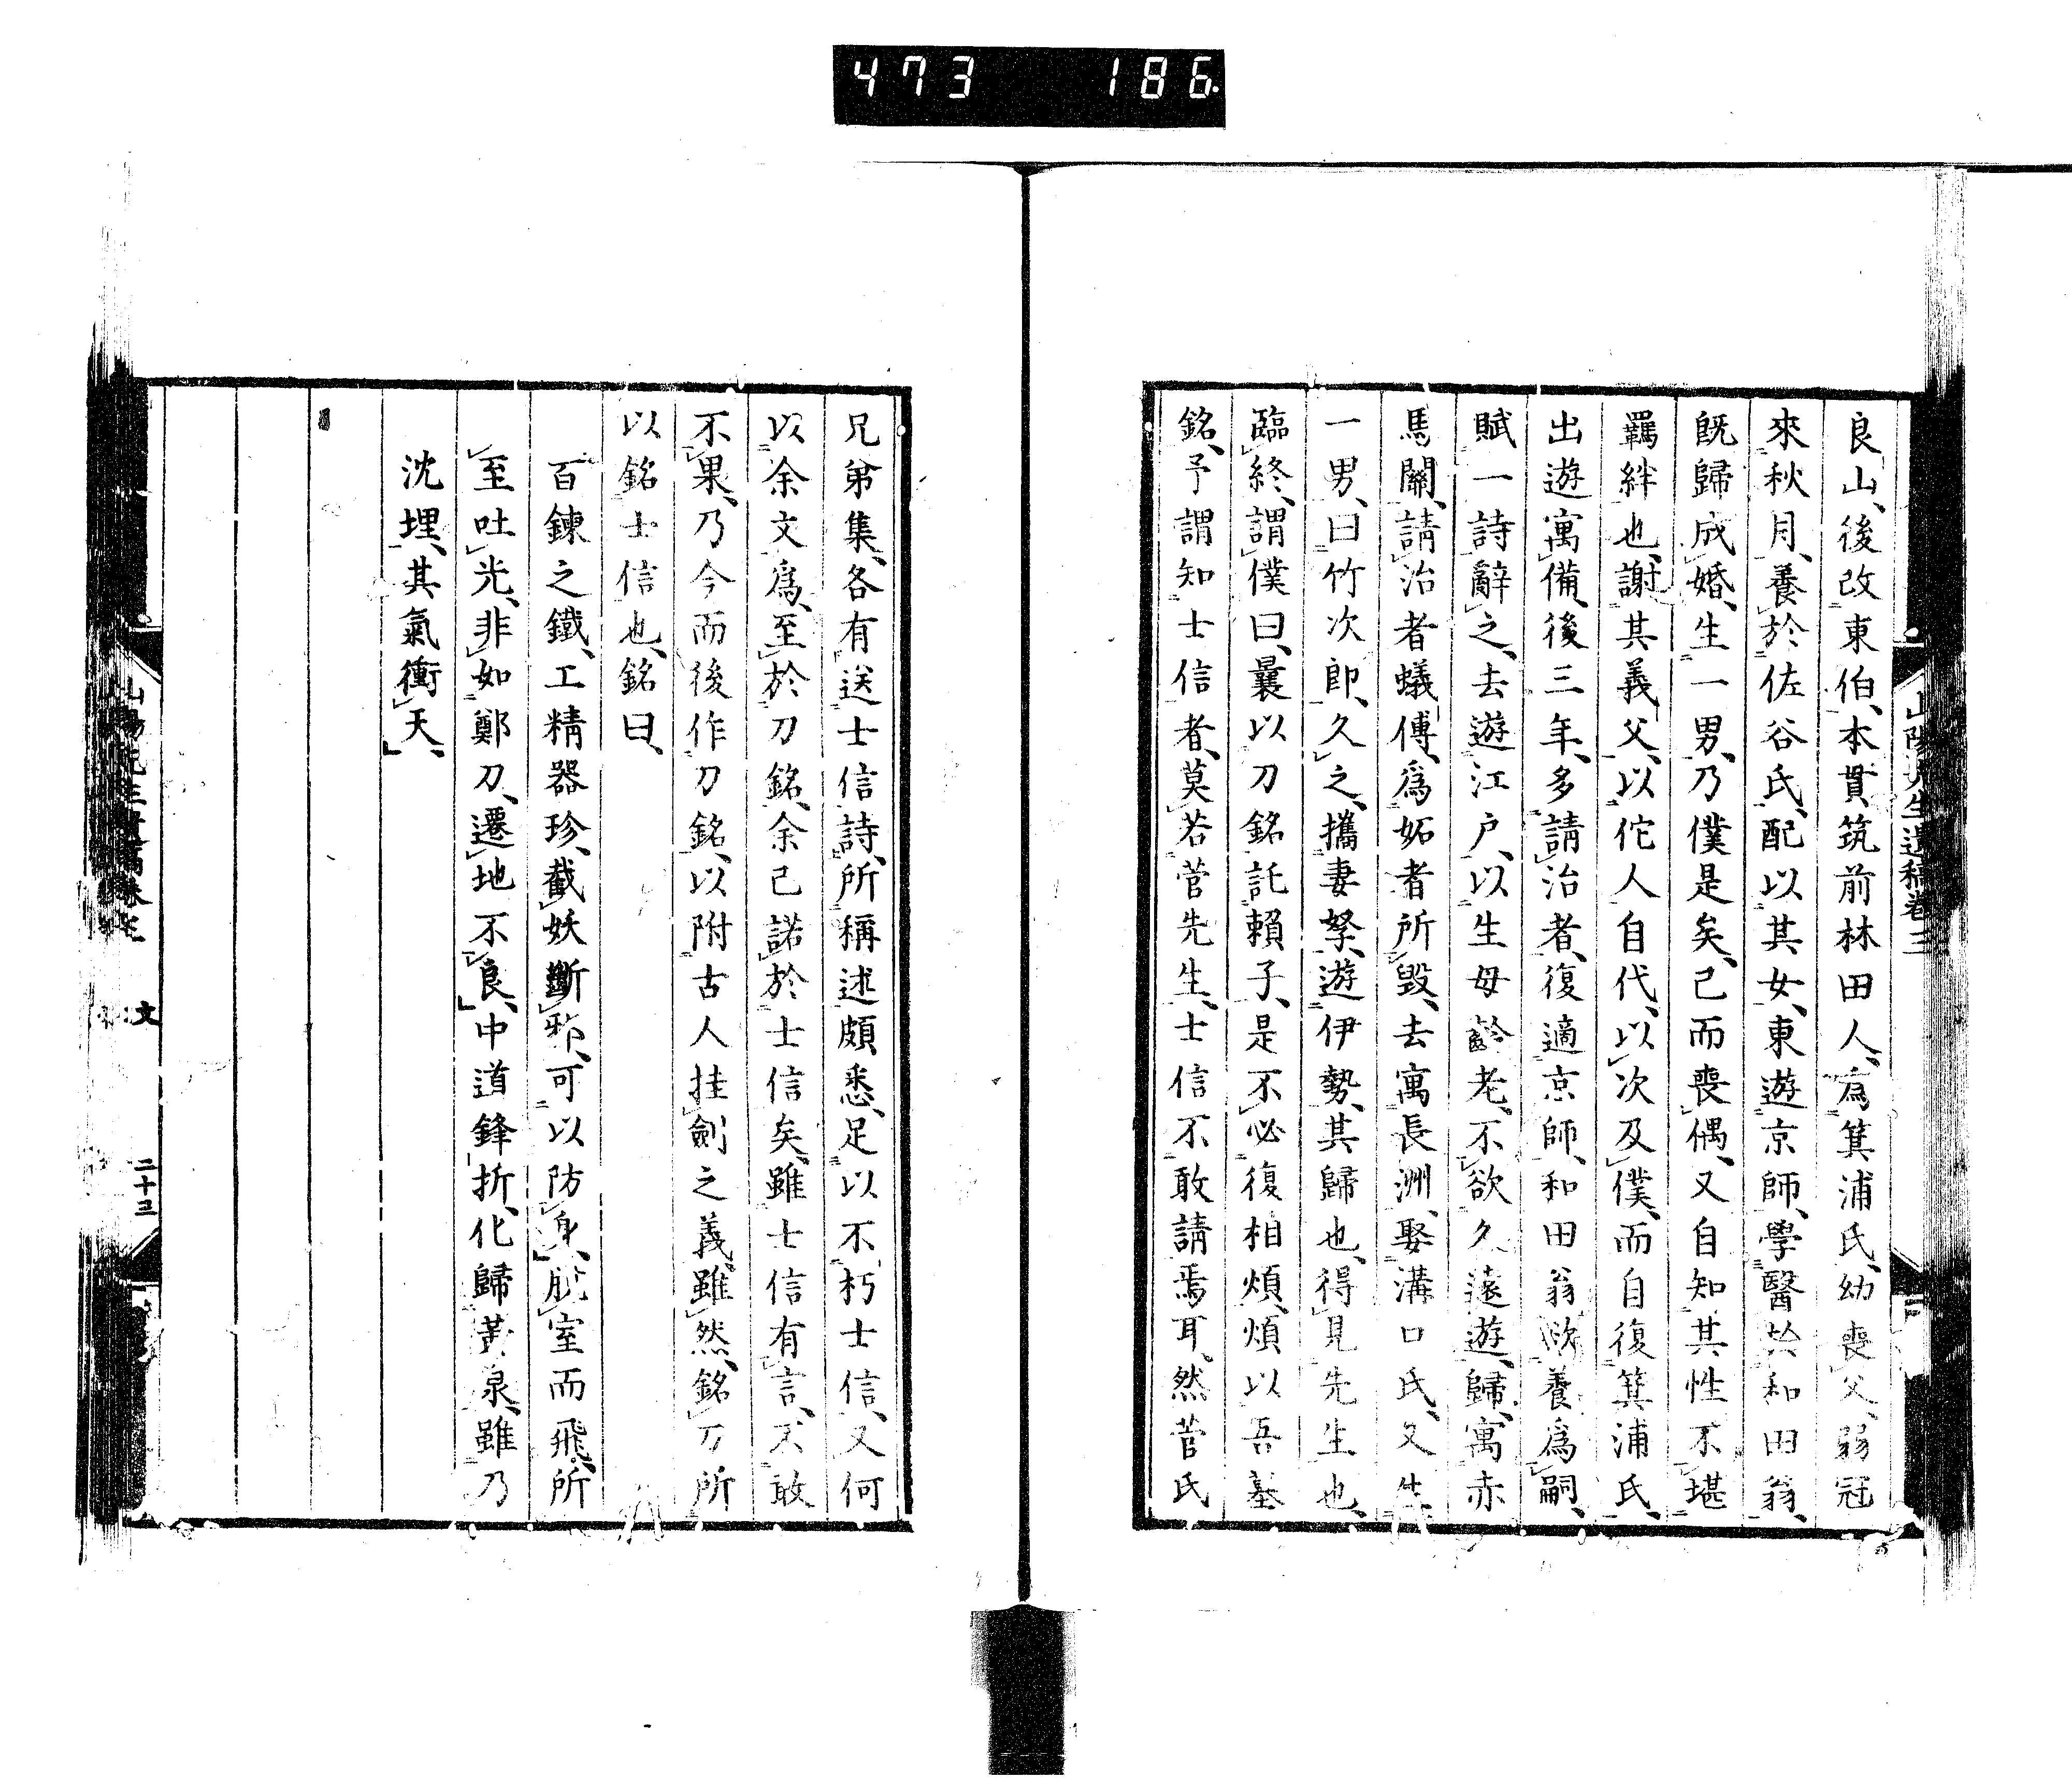 473 186
山陽先生遺稿卷三
良山、後改東伯、本貫筑前林田人、為箕浦氏、幼喪父、弱冠
來秋月、養於佐谷氏、配以其女、東遊京師、學醫於和田翁、
既歸成婚、生一男、乃僕是矣、已而喪偶、又自知其性不堪
羈絆也、謝其義父、以佗人自代、以次及僕、而自復箕浦氏、
出遊寓備、後三年、多請治者、復適京師、和田翁欲養爲嗣、
賦一詩辭之、去遊江戶、以生母齡老、不欲久遠遊、歸寓赤
馬關、請治者蟻傅、爲妬者所毀、去寓長洲、娶溝口氏、又生
一男、曰竹次郎、久之、攜妻孥、遊伊勢、其歸也、得見先生也、
臨終、謂僕曰、曩以刀銘託賴子、是不必復相煩、煩以吾墓
銘、予謂知士信者、莫若菅先生、士信不敢請焉耳、然菅氏
兄弟集、各有送士信詩、所稱述頗悉、足以不朽士信、又何
以余文爲、至於刀銘、余已諾於士信矣、雖士信有言、不敢
不果、乃今而後作刀銘、以附古人挂劍之義、雖然、銘刀所
以銘士信也、銘曰、
百鍊之鐵、工精器珍、截妖斷邪、可以防身、脫室而飛、所
至吐光、非如鄭刀、遷地不良、中道鋒折、化歸黃泉、雖乃
沈埋、其氣衝天、
文
二十三